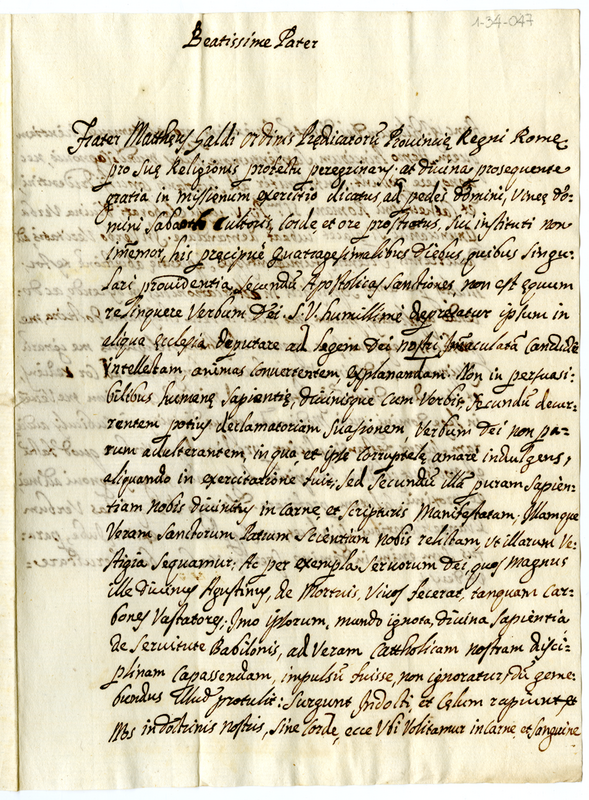 1-34-047
Beatissime Pater
Frater Mattheus Galdi Ordinis Prędicatorũ Prouincię Regni Romę
pro suę Religionis profectu peregrinans at diuina prosequente
gratia in missionum exercitio dicatus ad pedes domini, Vineę do-
mini Sabaoth Cultoris, Corde, et ore prostratus, sui instituti non
immemor, his pręcipuè quatragesimalibus diebus, quibus singu-
lari prouidentia secundũ Apostolicas Sanctiones, non est ęquum
relinquere Verbum Dei. S. V. humillimè deprecatur ipsum in
aliqua ecclesia deputare ad legem Dei nostri Immaculatã candidè
Intellectam, animas conuertentem explanandam. Non in persuasi-
bilibus humanę sapientię, diuinisque cum Verbis secundũ decur-
rentem potius declamatoriam suasionem, Verbum Dei non pa-
rum adulterantem, in qua, et ipse corruptelę amarè indulgens,
aliquando in exercitatione fuit, sed secundũ illã puram sapien-
tiam nobis diuinitus in carne, et scripturis Manifestatam, Illamque
Veram Sanctorum Patrum scientiam nobis relictam, Vt illarum Ve-
stigia sequamur; Ac per exempla seruorum Dei, quos magnus
ille diuinus Agustinus, de Mortuis, Viuos fecerat, tanquam Car-
bones Vastatores; Imo ipsorum, mundo ignota, diuina sapientia
de seruitute Babilonis, ad Veram Cattholicam nostram disci-
plinam capassendam, impulsũ fuisse, non ignoratur, dũ geme-
bundus Illud protulit: Surgunt Indocti, et Cęlum rapiunt, et
Nos in doctrinis nostris, sine Corde, ecce Vbi Volitamur in carne, et sanguine